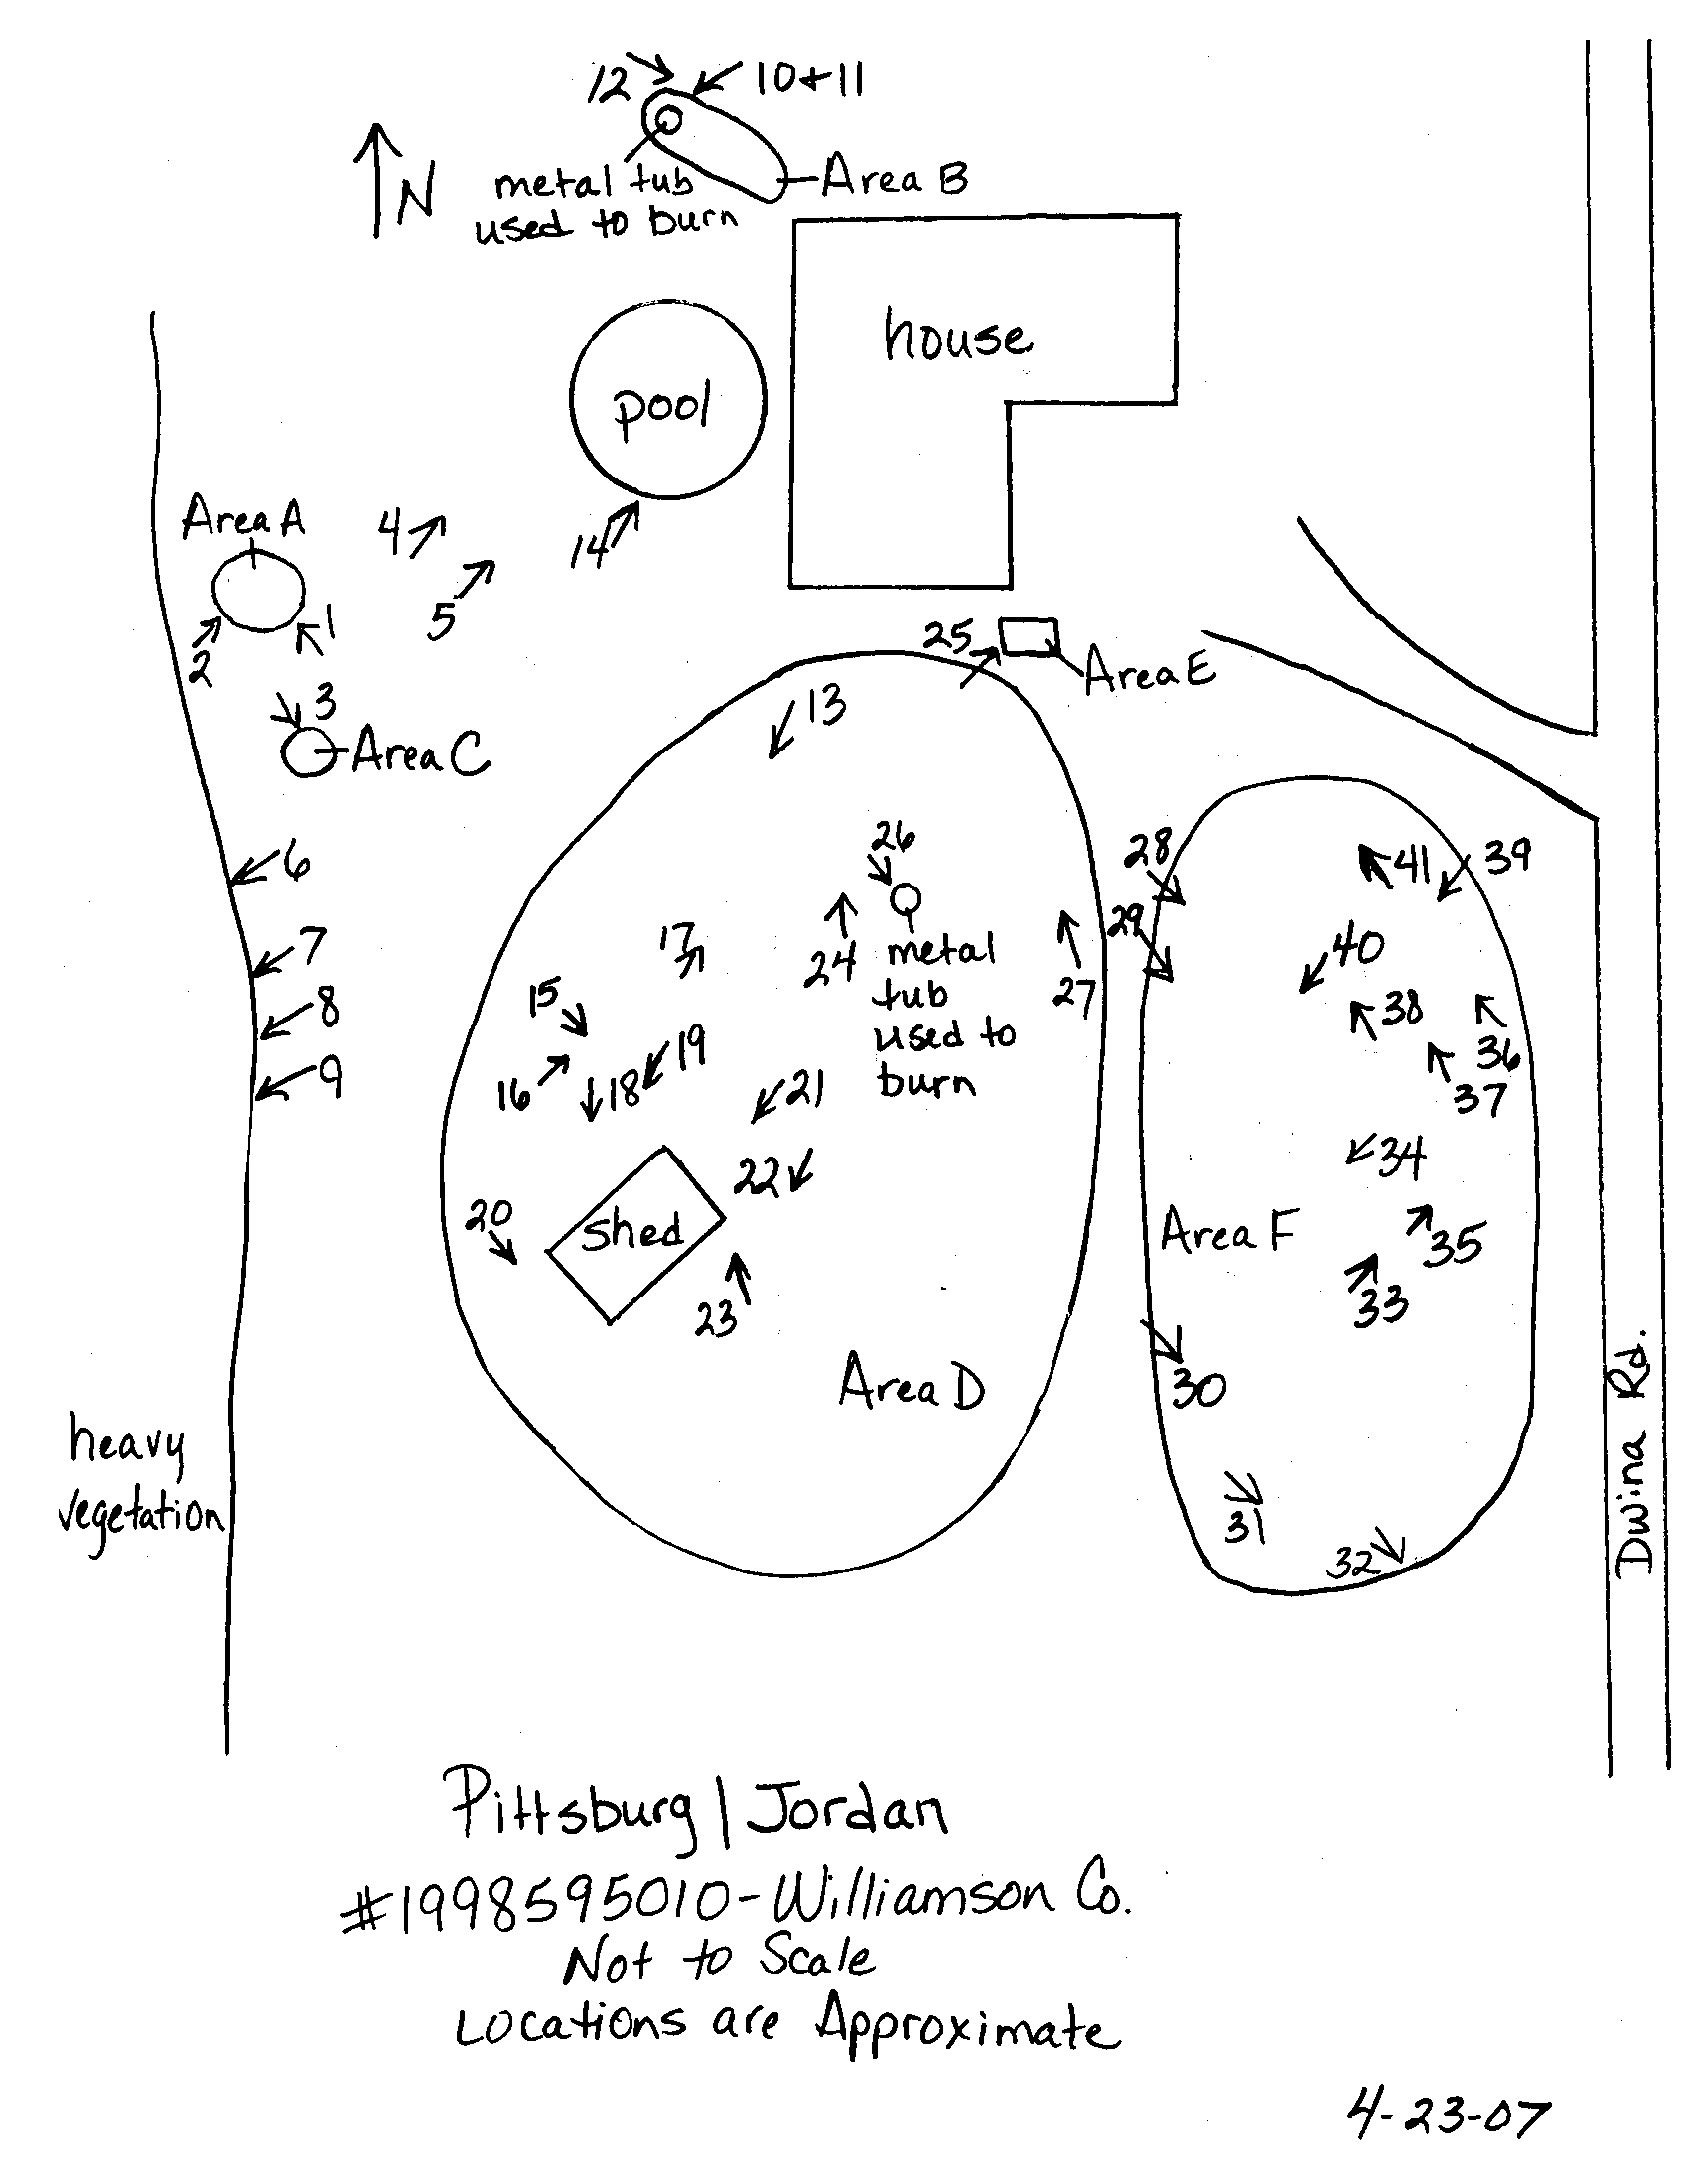 12
10+11
N
metal tub
used to burn
Area B
house
pool
Area A
4
14
5
1
2
25
Area E
3
13
Area C
26
28
41
39
6
29
17
40
7
24
metal
tub
used to
burn
15
27
38
8
19
36
9
16
18
21
37
34
22
20
shed
Area F
35
23
33
Area D
30
heavy
vegetation
31
32
Dwina Rd.
Pittsburg | Jordan
#1998595010-Williamson Co.
Not to Scale
Locations are Approximate
4-23-07